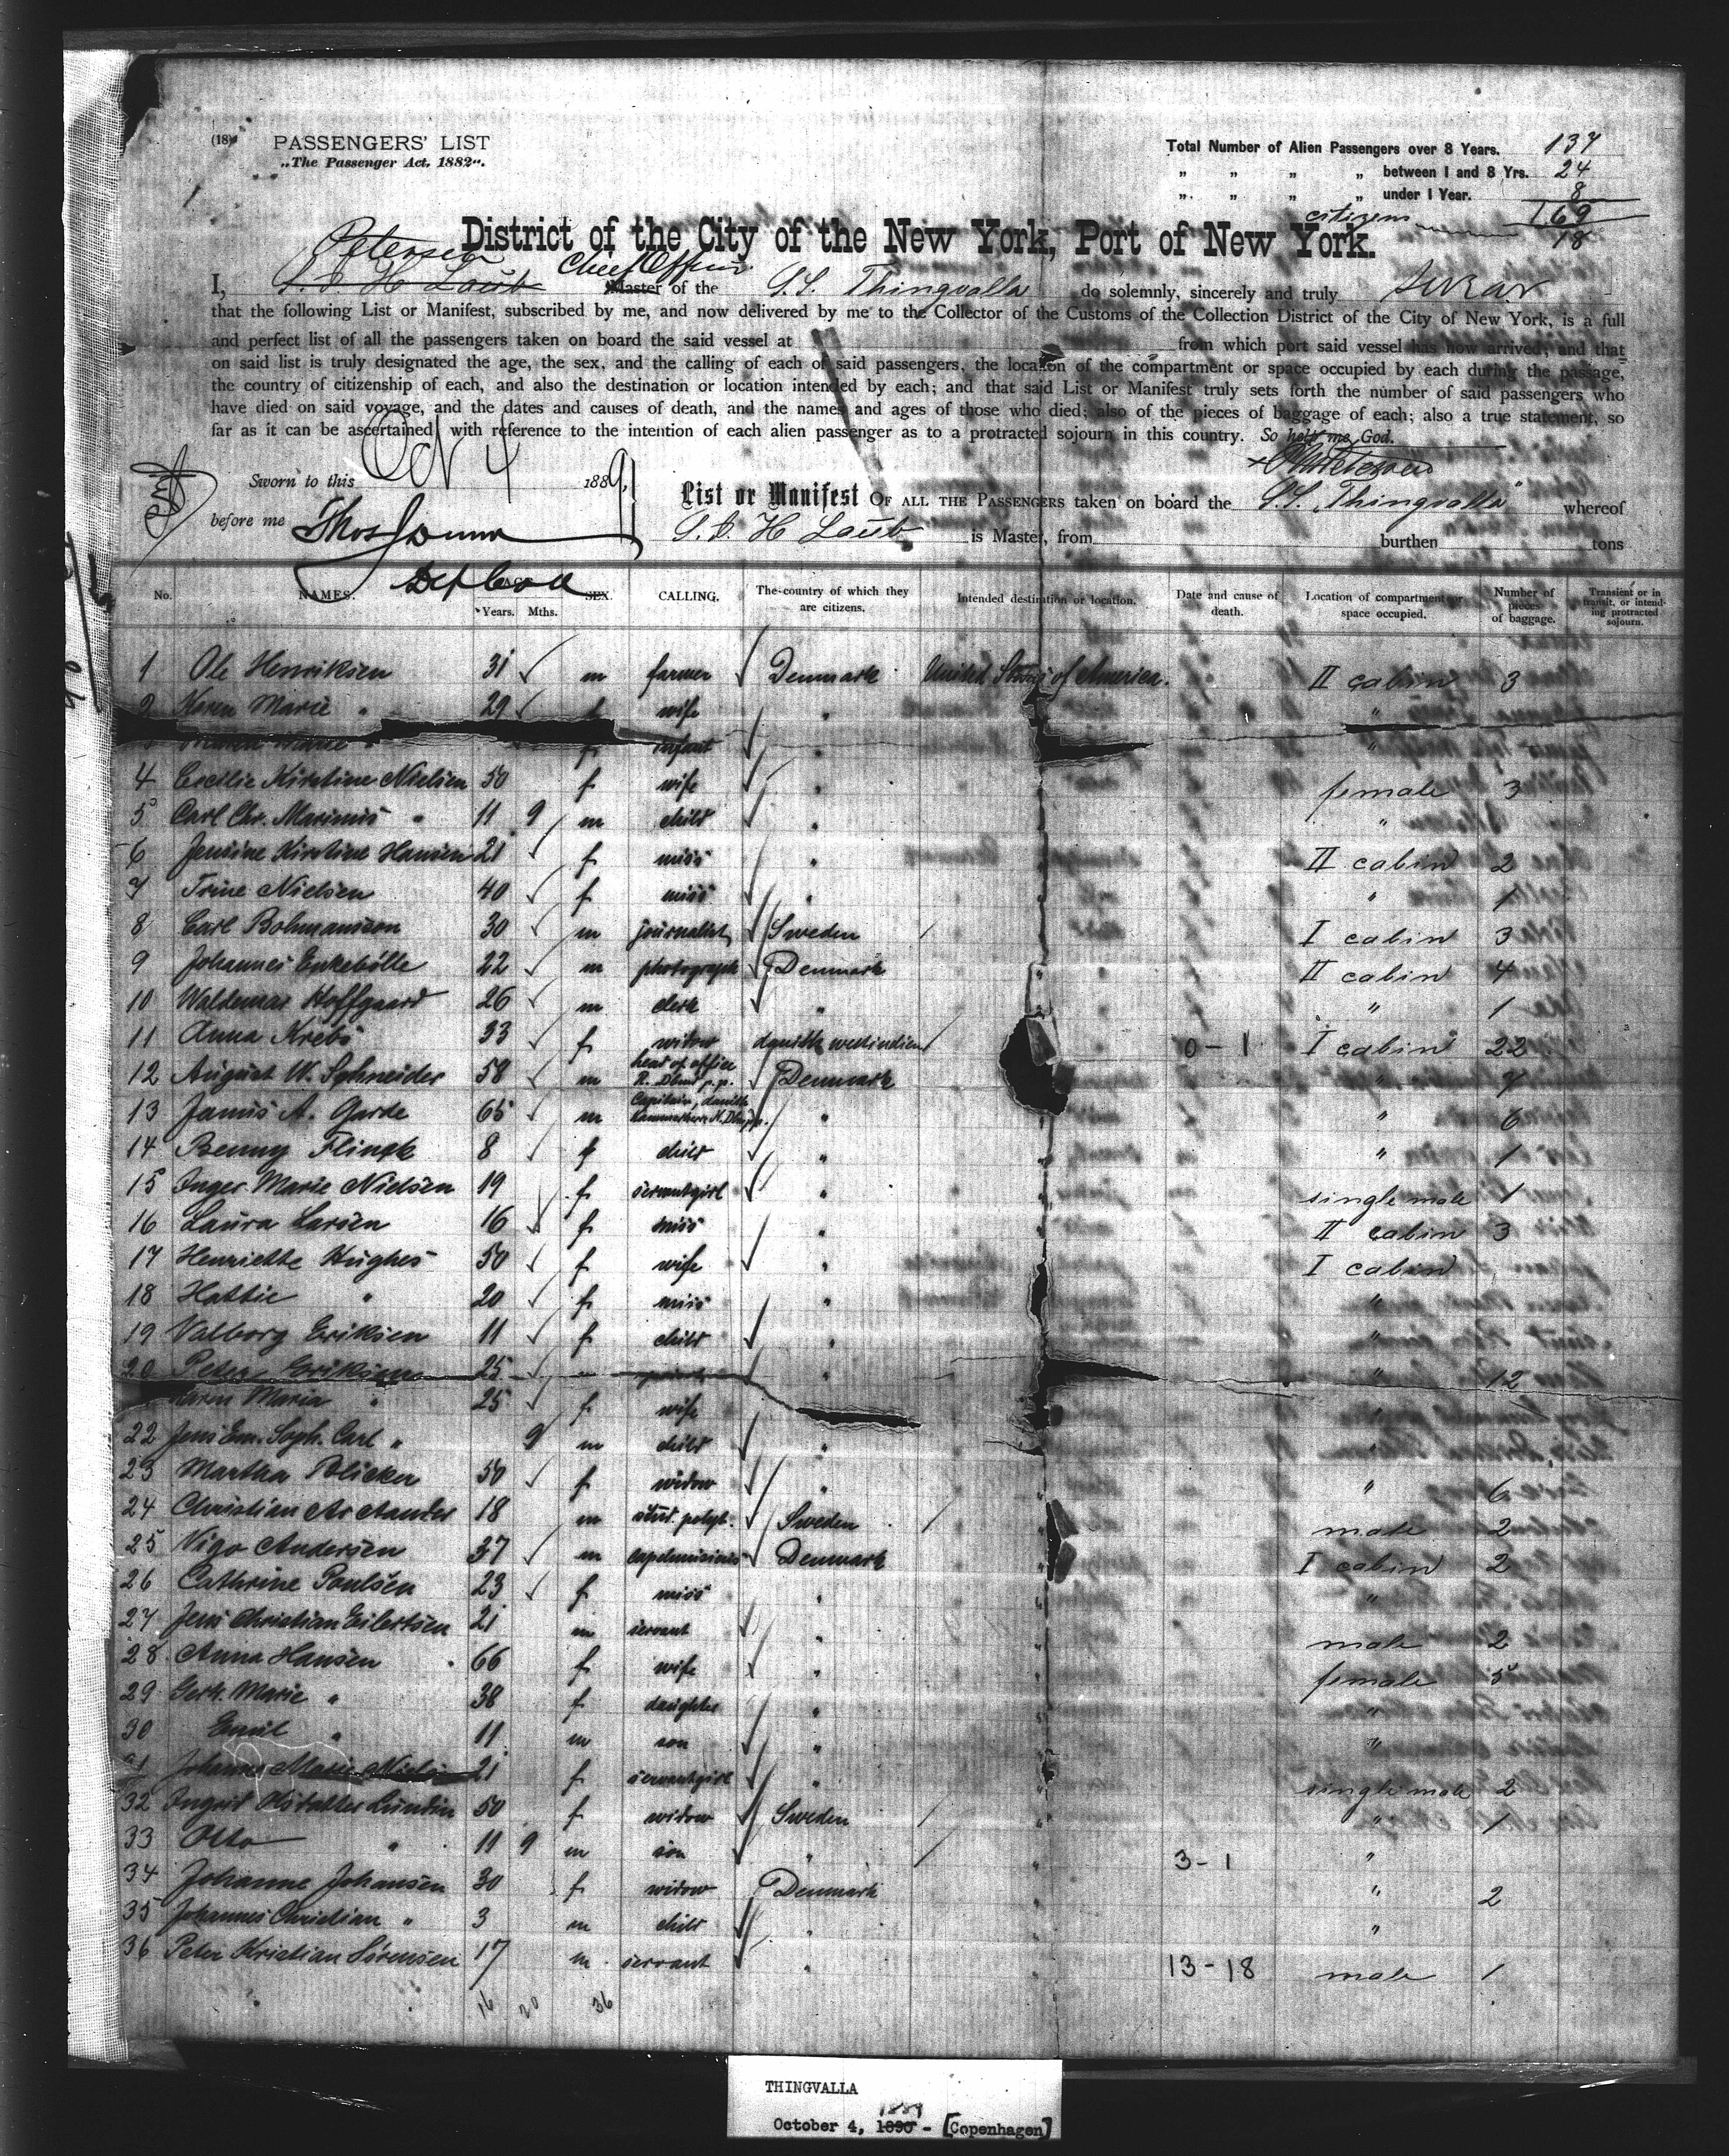 (188 PASSENGERS' LIST
„The Passenger Act, 1882".
Total Number of Alien Passengers over 8 Years. 137
„ „ „ „ between 1 and 8 Yrs. 24
„ „ „ „ under 1 Year. 8
citizens 169
18
District of the City of the New York, Port of New York.
Petersen Chief Officer
I, S. J. H Laub Master of the S.S. Thingvalla do solemnly, sincerely and truly swear
that the following List or Manifest, subscribed by me, and now delivered by me to the Collector of the Customs of the Collection District of the City of New York, is a full
and perfect list of all the passengers taken on board the said vessel at from which port said vessel has now arrived; and that
on said list is truly designated the age, the sex, and the calling of each of said passengers, the location of the compartment or space occupied by each during the passage,
the country of citizenship of each, and also the destination or location intended by each; and that said List or Manifest truly sets forth the number of said passengers who
have died on said voyage, and the dates and causes of death, and the names and ages of those who died; also of the pieces of baggage of each; also a true statement, so
far as it can be ascertained, with reference to the intention of each alien passenger as to a protracted sojourn in this country. So help me God.
Petersen
Sworn to this Oct 4 1889,
List or Manifest OF ALL THE PASSENGERS taken on board the S.S. „Thingvalla" whereof
before me Thos S. J. H Laub is Master, from burthen tons
No. NAMES. AGE Years. Mths. SEX. CALLING. The country of which they are citizens. Intended destination or location. Date and cause of death. Location of compartment or space occupied. Number of pieces of baggage. Transient or in transit, or intending protracted sojourn.
1 Ole Henriksen 31 m farmer Denmark United States of America. II cabin 3
2 Karen Marie „ 29 f wife „ „
3 Marie „ f infant „ „
4 Cecilie Kirstine Nielsen 50 f wife „ female 3
5 Carl Chr. Marinus „ 11 9 m child „ „
6 Jensine Kirstine Hansen 21 f miss „ II cabin 2
7 Trine Nielsen 40 f miss „ „ 1
8 Carl Bohmansson 30 m journalist Sweden I cabin 3
9 Johannes Enkebölle 22 m photograph Denmark „ II cabin 4
10 Waldemar Hoffgaard 26 m clerk „ „ 1
11 Anna Krebs 33 f widow danish westindien 0-1 I cabin 22
12 August W. Schneider 58 m head of office K. Dbmd p.p. Denmark „ 7
13 Janus A. Garde 65 m Capitain, danish „ „ 6
14 Benny Flinck 8 f child „ „ „ 1
15 Inger Marie Nielsen 19 f servantgirl „ „ single male 1
16 Laura Larsen 16 f miss „ „ II cabin 3
17 Henriette Hughes 50 f wife „ I cabin
18 Hattie „ 20 f miss „ „
19 Valborg Eriksen 11 f child „ „
20 Peter Eriksen 25 „ „ 12
Karen Maria „ 25 f wife „
22 Jens Em. Soph. Carl „ 9 m child „ „
23 Martha Blicker 50 f widow „ „ „ 6
24 Christian 18 m stud. polyt. Sweden „ male 2
25 Vigo Andersen 37 m Denmark „ I cabin 2
26 Cathrine Poulsen 23 f miss „ „ „
27 Jens Christian Eilertsen 21 m servant „ „ male 2
28 Anna Hansen 66 f wife „ „ female 5
29 Gert. Marie „ 38 f daughter „ „ „
30 Emil „ 11 m son „ „ „
31 Johanne Marie Nielsen 21 f servantgirl „ „ single male 2
32 Ingrid Lundin 50 f widow Sweden „ „ 1
33 Otto „ 11 9 m son „ „ 3-1 „
34 Johanne Johansen 30 f widow Denmark „ „ 2
35 Johannes Christian „ 3 m child „ „ „
36 Peter Kristian Sørensen 17 m servant „ „ 13-18 male 1
16 20 36
THINGVALLA
1889
October 4, 1890 - [Copenhagen]